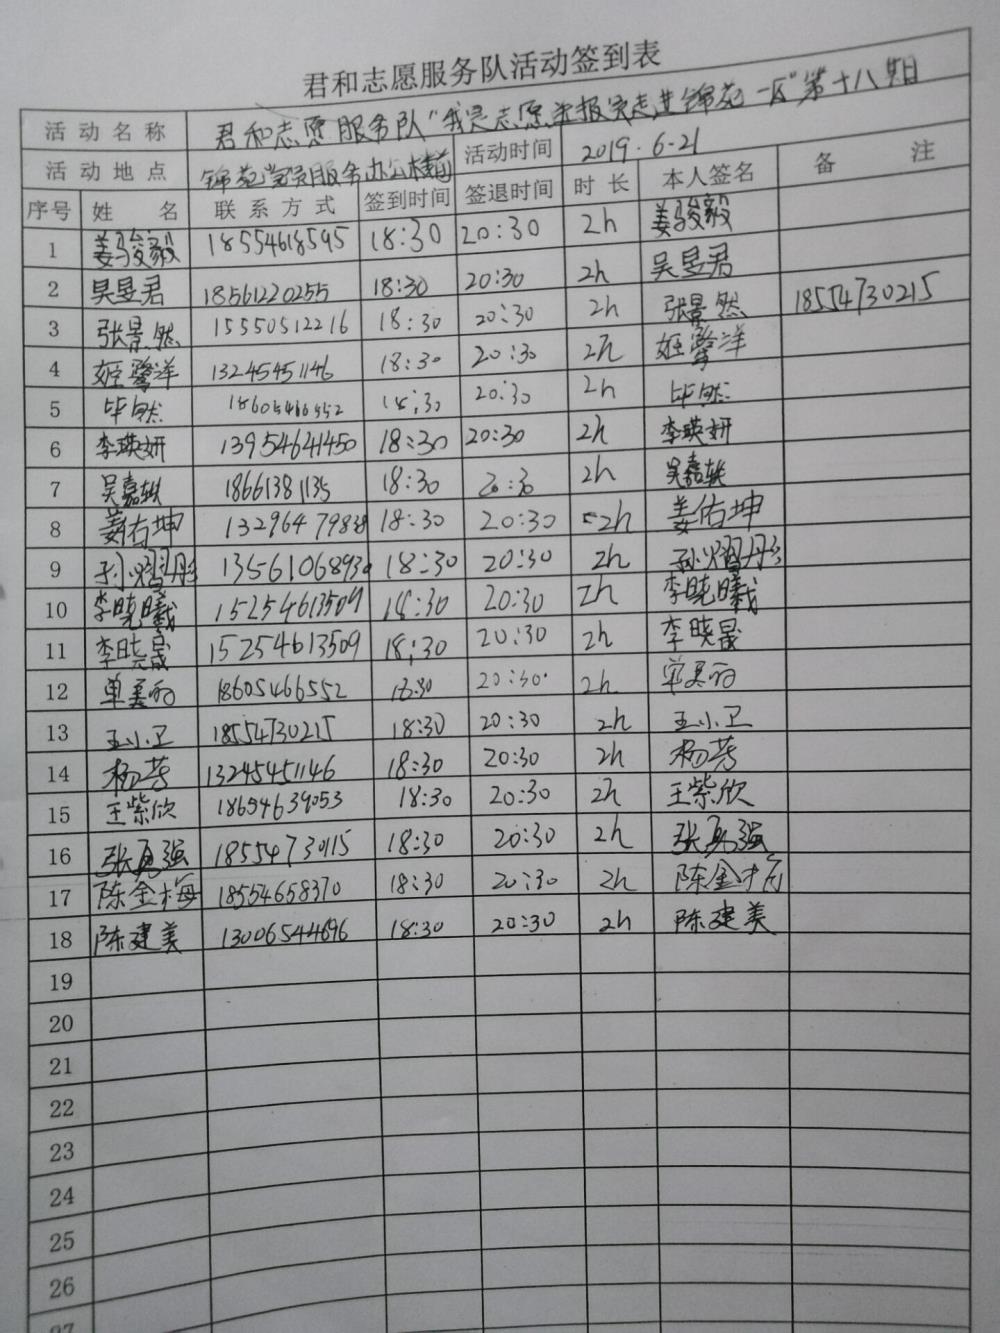 君和志愿服务队活动签到表
活动名称 君和志愿服务队"我是志愿举报员走进锦苑一区"第十八期
活动地点 锦苑党员服务办公楼前 活动时间 2019.6-21
序号 姓名 联系方式 签到时间 签退时间 时长 本人签名 备注
1 姜骏毅 18554618595 18:30 20:30 2h 姜骏毅
2 吴昱君 18561220255 18:30 20:30 2h 吴昱君
3 张景然 15550512216 18:30 20:30 2h 张景然 18554730215
4 姬馨洋 13245451146 18:30 20:30 2h 姬馨洋
5 毕然 18605466552 18:30 20:30 2h 毕然
6 李瑛妍 13954641450 18:30 20:30 2h 李瑛妍
7 吴嘉轶 18661381135 18:30 20:30 2h 吴嘉轶
8 姜佑坤 18:30 20:30 2h 姜佑坤
9 孙熠彤 18:30 20:30 2h 孙熠彤
10 李晓曦 15254613509 18:30 20:30 2h 李晓曦
11 李晓晟 15254613509 18:30 20:30 2h 李晓晟
12 单美丽 18605466552 18:30 20:30 2h 单美丽
13 王小卫 18554730215 18:30 20:30 2h 王小卫
14 杨芳 13245451146 18:30 20:30 2h 杨芳
15 王紫欣 18654639053 18:30 20:30 2h 王紫欣
16 张勇强 18554730115 18:30 20:30 2h 张勇强
17 陈金梅 18554658370 18:30 20:30 2h 陈金梅
18 陈建美 13006544696 18:30 20:30 2h 陈建美
19
20
21
22
23
24
25
26
27